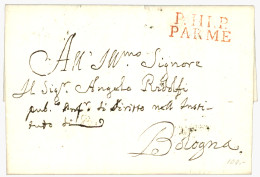 P.111.P.
PARME
All' Ill.mo Signore
Il Sig.r Angelo Ridolfi
pub.o Prof.e di Diritto nell' Insti-
tuto di
Bologna